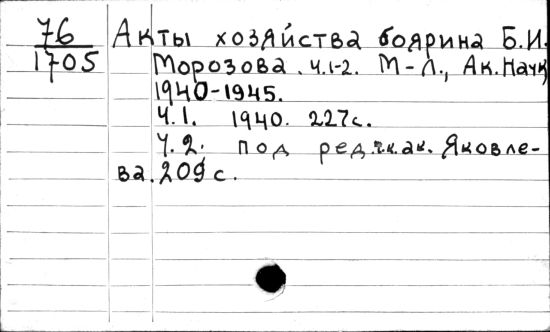 76
1705
Акты хозяйства боярина Б.И.
Морозова. Ч.1-2. М-Л., Ак.Наук
1940-1945.
Ч.1. 1940. 227с.
Ч.2. под ред. чк.ак. Яковле-
ва. 209 с.